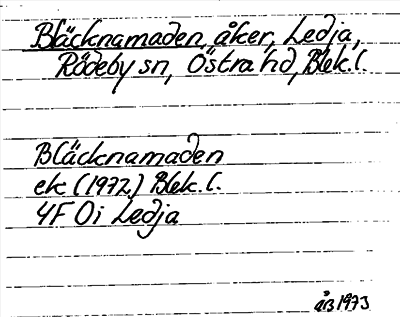 Bläcknamaden, åker, Ledja,
Rödeby sn, Östra hd, Blek.l.
Bläcknamaden
ek (1972) Blek.l.
4F 0i Ledja
åB 1973